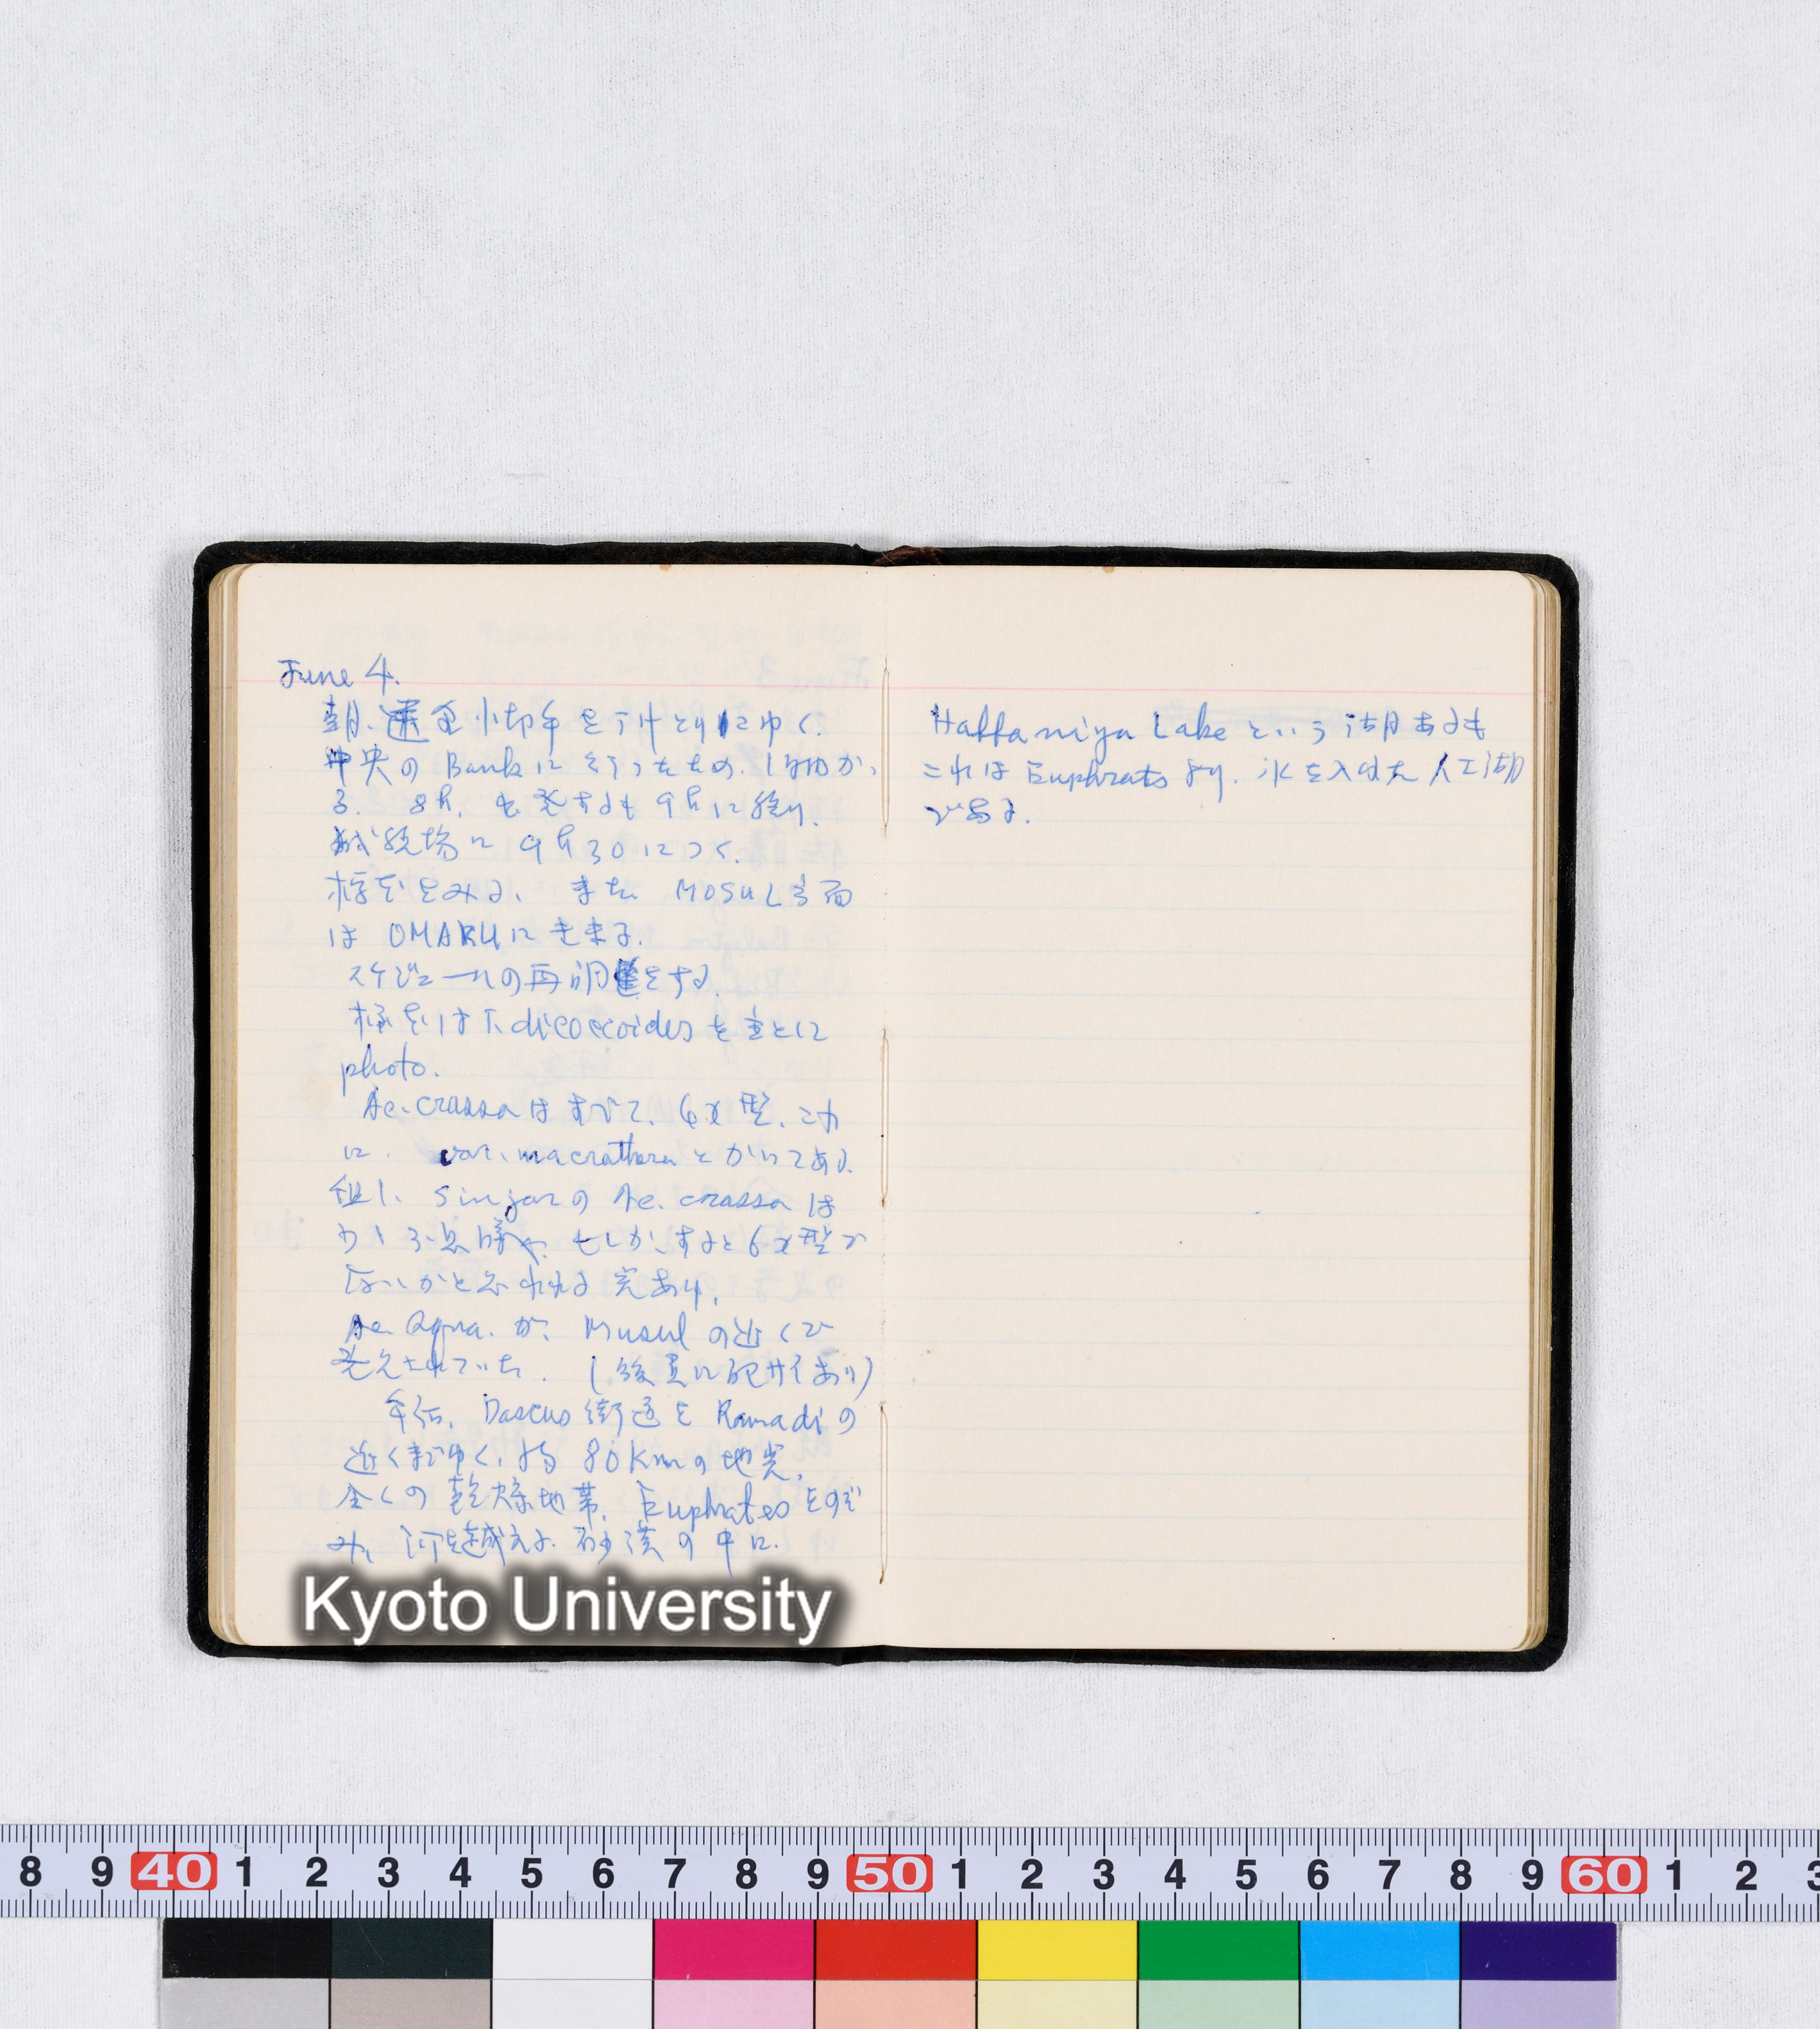 June 4.
朝、送金小切手を受けとりにゆく.
中央の Bank に行ったため. 1時間かゝ
る. 8h. 出発するも 9h に帰り.
試験場に 9h30 につく.
標本をみる、 また MOSUL 方面
は OMARU に
スケジュールの再調整をする.
標本は T. dicoccoides を主とに
photo.
Ae. crassa はすべて、6x 型. これ
に. var. macrathera とかいてある.
但し、Sinjar の Ae. crassa は
もしかすると 6x 型で
ないかと思われる 点あり.
Ae. squa. が、 Musul の近くで
発見されていた. (後頁に記サイあり)
午后、Dascus 街道を Ramadi の
近くまでゆく、約 80 Km の地点.
全くの 乾燥地帯. Euphrates をのぞ
み、河を越える. 砂漠の中に.
Haffaniya Lake という湖あるも
これは Euphrats より. 水を入れた 人工湖
である.
Kyoto University
8 9 40 1 2 3 4 5 6 7 8 9 50 1 2 3 4 5 6 7 8 9 60 1 2 3